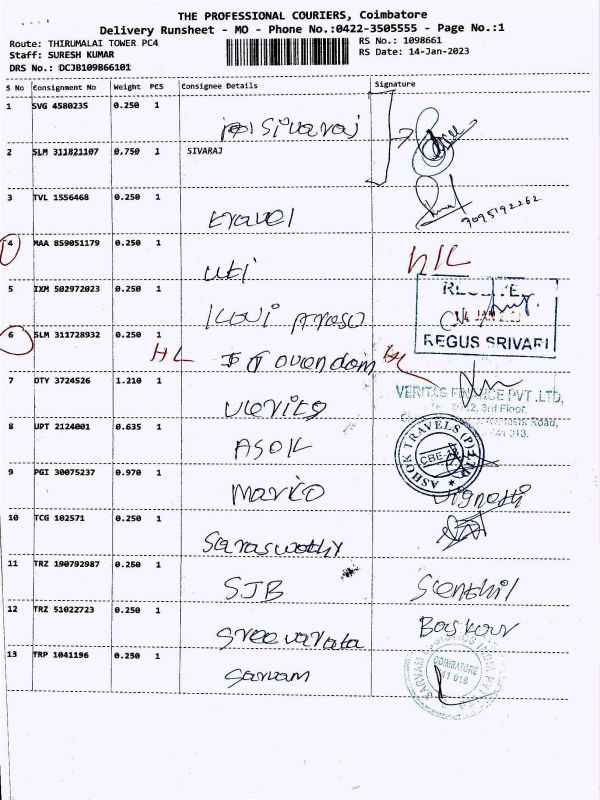 THE PROFESSIONAL COURIERS, Coimbatore
Delivery Runsheet - MO - Phone No.:0422-3505555 - Page No.:1
Route: THIRUMALAI TOWER PC4
RS No.: 1098661
Staff: SURESH KUMAR
RS Date: 14-Jan-2023
DRS No.: DCJB109866101
S No Consignment No Weight PCS Consignee Details Signature
1 SVG 4580235 0.250 1
Sivaraj
2 SLM 311821107 0.750 1 SIVARAJ
3 TVL 1556468 0.250 1
travel 9095192262
4 MAA 859051179 0.250 1
uti
5 IXM 502972023 0.250 1
REGUS SRIVARI
6 SLM 311728932 0.250 1
HL
7 OTY 3724526 1.210 1
VERITAS FINANCE PVT .LTD,
3rd Floor,
Road,
8 UPT 2124001 0.635 1
ASOK ASHOK TRAVELS (P) LTD
9 PGI 30075237 0.970 1
Marico Vignesh
10 TCG 102571 0.250 1
Saraswathy
11 TRZ 190792987 0.250 1
SJB Senthil
12 TRZ 51022723 0.250 1
Sreevarata Baskar
13 TRP 1041196 0.250 1
Sarvam COIMBATORE